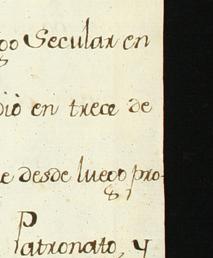 go Secular en
dió en trece de
e desde luego pro-
Patronato, y